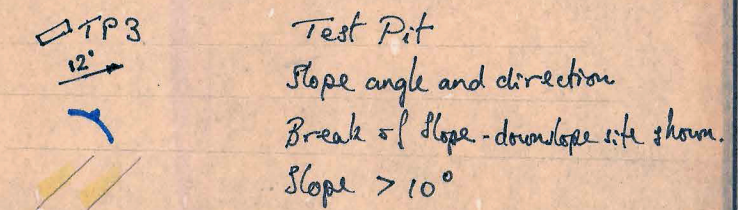 TP3 Test Pit
12° Slope angle and direction
Break of Slope - downslope site shown.
Slope > 10°